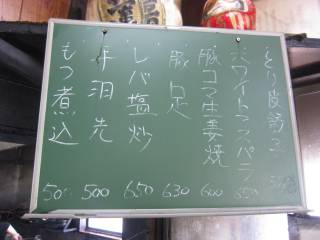 とり皮
ホワイトアスパラ 650
豚コマ生姜焼 600
豚足 630
レバ塩炒 650
手羽先 500
もつ煮込 500